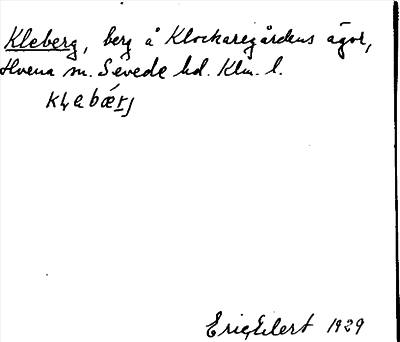 Kleberg, berg å Klockaregårdens ägor,
Hvena sn. Sevede hd. Klm. l.
Eric Eilert 1929